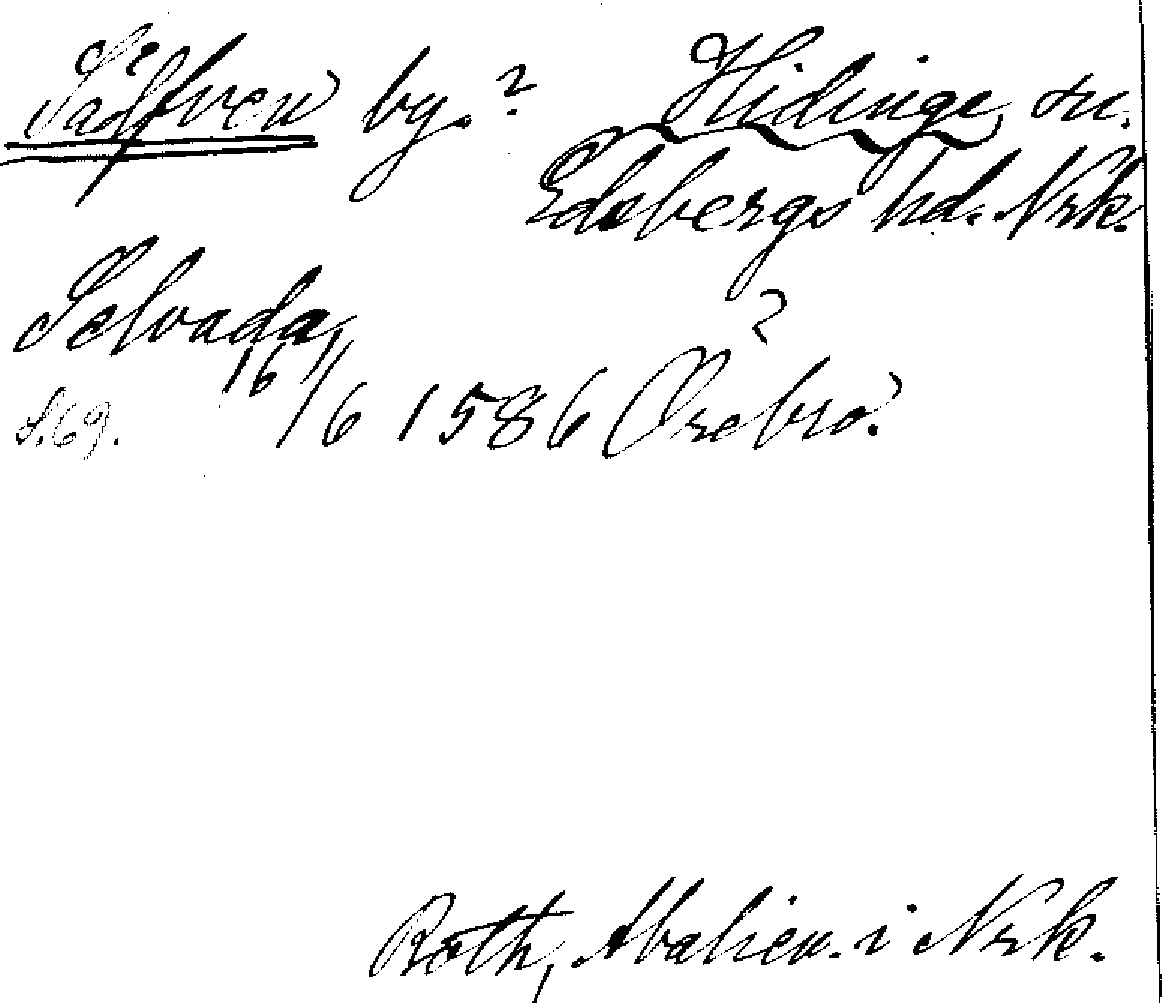 Sälfven by.? Hidinge sn.
Edsbergs hd. Nrk.
Selvada, ?
s. 69. 16/6 1586 Örebro.
Roth, Abalien. i Nrk.